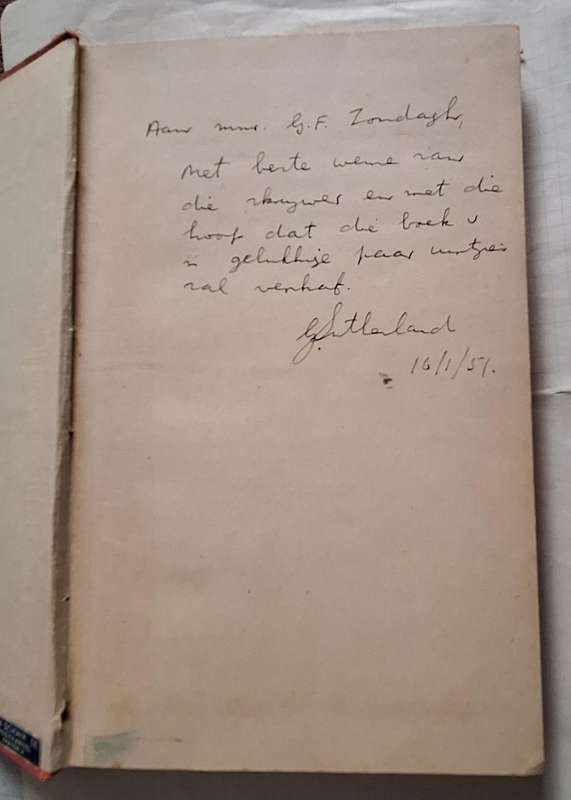 Aan mnr. G.F. Zondagh,
Met beste wense van
die skrywer en met die
hoop dat die boek u
'n gelukkige paar uurtjies
sal verskaf.
G Sutherland
16/1/51.